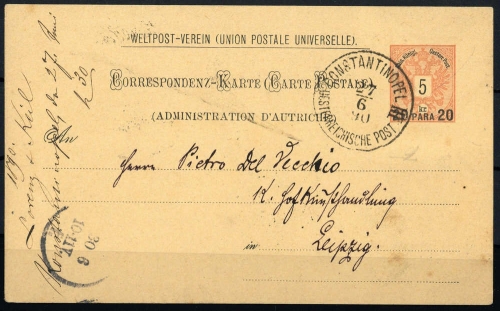 WELTPOST-VEREIN (UNION POSTALE UNIVERSELLE).
CORRESPONDENZ-KARTE (CARTE POSTALE)
(ADMINISTRATION D'AUTRICHE)
CONSTANTINOPEL
27
6
90
ÖSTERREICHISCHE POST
5
kr.
20 PARA 20
An
Herrn Pietro Del Vecchio
K. Hofkunsthandlung
in Leipzig.
1890.
Lorenz & Keil
Konstantinopel 27 Juni
30 6